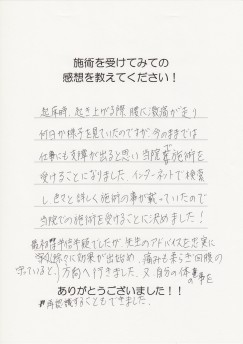 施術を受けてみての
感想を教えてください！
起床時、起き上がる際 腰に激痛が走り
何日か様子を見ていたのですが、今のままでは
仕事にも支障が出ると思い 当院で施術を
受けることになりました。インターネットで検索
し色々と詳しく施術の事が載っていたので
当院での施術を受けることに決めました！
最初は半信半疑でしたが、先生のアドバイスを忠実に
守るに効果が出始め、痛みも柔らぎ回復の
方向へ行きました。又 自分の体の事を
再認識することもできました。
ありがとうございました！！